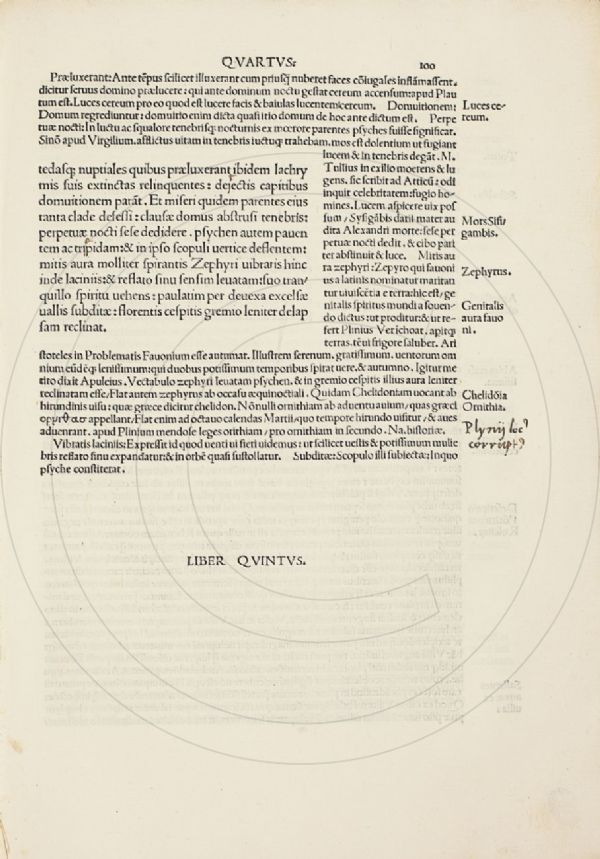 QVARTVS: 100
Præluxerant: Ante tẽpus scilicet illuxerant cum priusq̃ nuberet faces cõiugales inflãmassent.
dicitur seruus domino prælucere: qui ante dominum noctu gestat cereum accensum: apud Plau
tum est. Luces cereum pro eo quod est lucere facis & baiulas lucentem cereum. Domuitionem:
Domum regrediuntur: domuitio enim dicta quasi itio domum de hoc ante dictum est. Perpe
tuæ nocti: In luctu ac squalore tenebrisq; nocturnis ex mœrore parentes psyches fuisse significat.
Sinõ apud Virgilium. afflictus uitam in tenebris luctuq; trahebam. mos est dolentium ut fugiant
Luces ce-
reum.
tedasq; nuptiales quibus præluxerant ibidem lachry
mis suis extinctas relinquentes: deiectis capitibus
domuitionem parãt. Et miseri quidem parentes eius
tanta clade defessi: clausæ domus abstrusi tenebris:
perpetuæ nocti sese dedidere. psychen autem pauen
tem ac trepidam: & in ipso scopuli uertice deflentem:
mitis aura molliter spirantis Zephyri uibratis hinc
inde laciniis: & reflato sinu sensim leuatam: suo tran/
quillo spiritu uehens: paulatim per deuexa excelsæ
uallis subditæ: florentis cespitis gremio leniter delap
sam reclinat.
lucem & in tenebris degãt. M.
Tullius in exilio moerens & lu
gens. sic scribit ad Atticũ: odi
inquit celebritatem: fugio ho-
mines. Lucem aspicere uix pos
sum/ Sysigãbis datii mater au
dita Alexandri morte: sese per
petuæ nocti dedit. & cibo pari
ter abstinuit & luce. Mitis au
ra zephyri: Zepyro qui fauoni
us a latinis nominatur maritan
tur uiuiscētia e terra: hic est/ ge
nitalis spiritus mundi a fouen-
do dictus: ut proditur: & ut re-
fert Plinius Veri choat. apitq;
terras. tēui frigore saluber. Ari
Mors Sisi
gambis.
Zephyrus.
Genitalis
aura fauo
ni.
stoteles in Problematis Fauonium esse autumat. Illustrem serenum. gratissimum. uentorum om
nium eũdẽq; lenissimum: qui duobus potissimum temporibus spirat uere, & autumno. Igitur me
rito dixit Apuleius. Vectabulo zephyri leuatam psychen. & in gremio cespitis illius aura leniter
reclinatam esse/ Flat autem zephyrus ab occasu æquinoctiali. Quidam Chelidonium uocant ab
hirundinis uisu: quæ græce dicitur chelidon. Nõnulli ornithiam ab aduentu auium/ quas græci
appellant/ Flat enim ad octauo calendas Martii/ quo tempore hirundo uisitur/ & aues
aduentant. apud Plinium mendose leges orithiam/ pro ornithiam in secundo. Na. historiæ.
Chelidõia
Ornithia.
Plynij loc'
corrupt'
Vibratis laciniis: Expressit id quod uenti ui fieri uidemus: ut scilicet uestis & potissimum mulie
bris reflato sinu expandatur: & in orbẽ quasi sustollatur. Subditæ: Scopulo illi subiectæ: In quo
psyche constiterat.
LIBER QVINTVS.